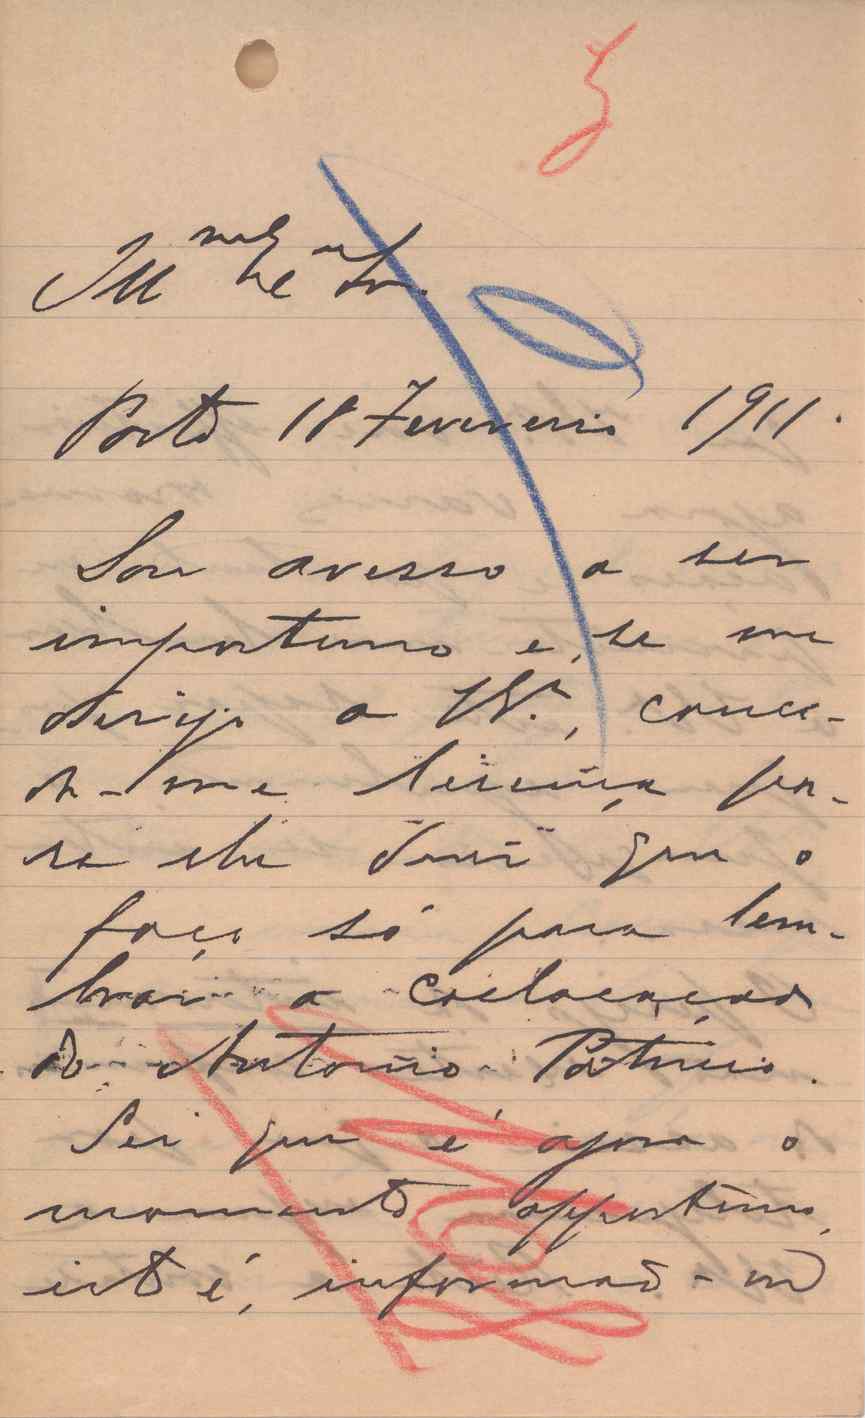 Illmo Exmo Snr.
Porto 18 Fevereiro 1911.
Sou avesso a ser
importuno e, se me
dirijo a V. Sr.ª, conce-
da-me licença pa-
ra lhe dizer que o
faço só para lem-
brar a collocação
do Antonio Patricio.
Sei que é agora o
momento opportuno,
isto é, informão-me